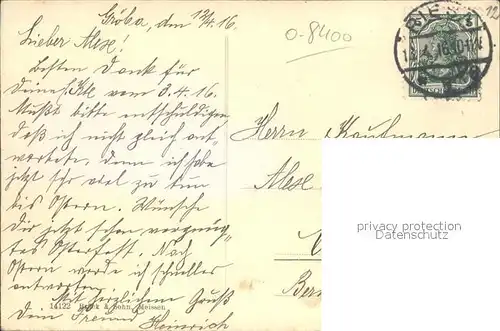 Gröba, den 12/4. 16.
Lieber Alex!
Besten Dank für
deine Kte vom 8.4.16.
Mußt bitte entschuldigen
daß ich nicht gleich ant-
wortete, denn ich habe
jetzt sehr viel zu tun
bis Ostern. Wünsche
Dir jetzt schon vergnüg-
tes Osterfest. Nach
Ostern werde ich schneller
antworten.
Mit herzlichem Gruß
Dein Freund
Heinrich
14122 Brück & Sohn, Meissen
0-8400
Herrn Kaufmann
Alex
privacy protection
Datenschutz